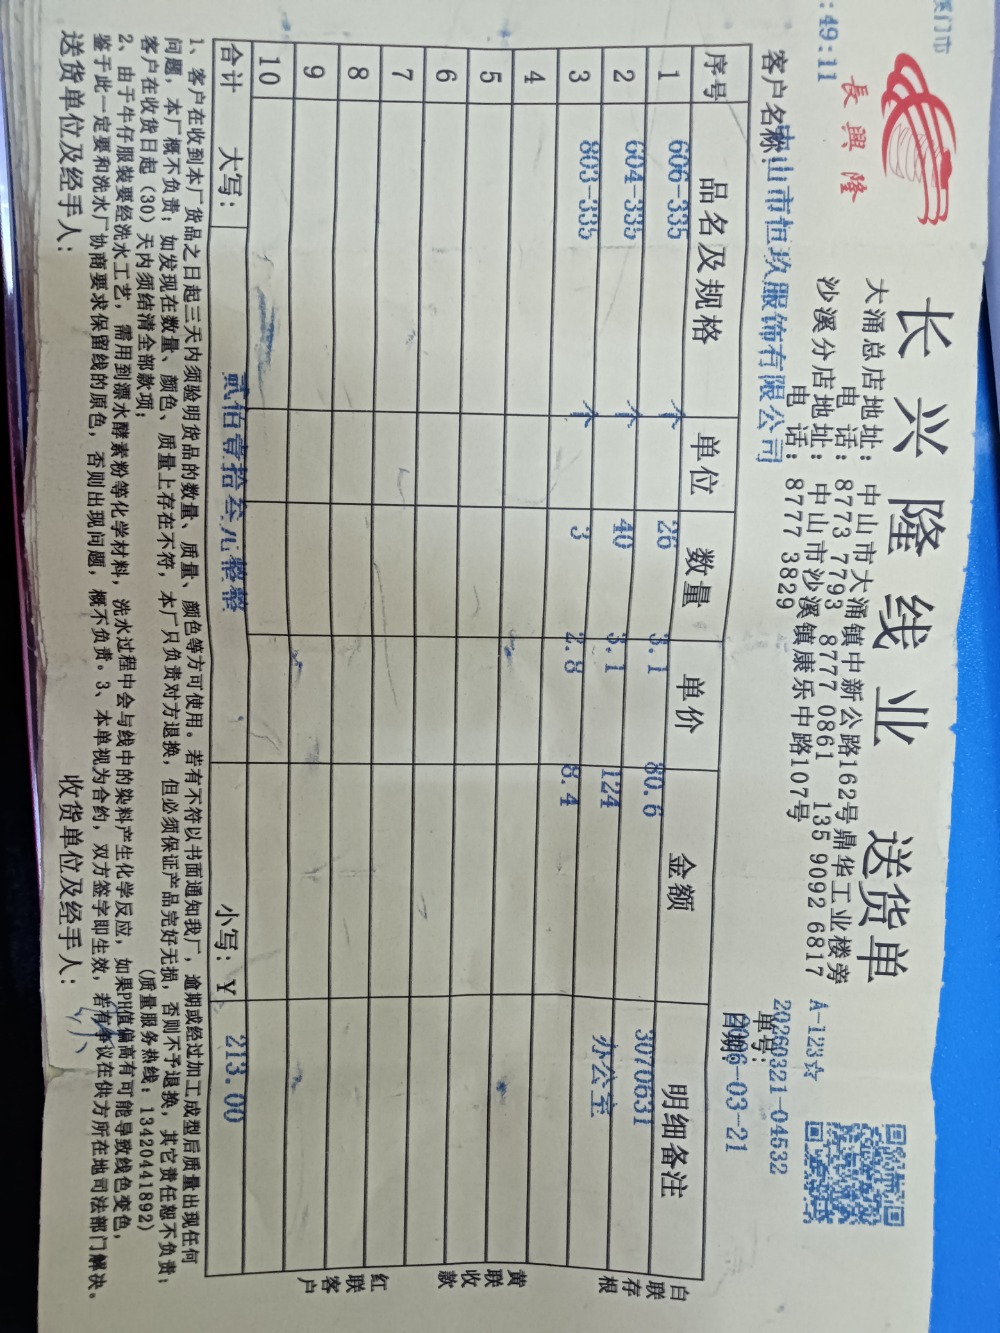 溪门市
:49:11
長興隆
长兴隆线业 送货单
大涌总店地址: 中山市大涌镇中新公路162号鼎华工业楼旁
电 话: 8773 7793 8777 0861 135 9092 6817
沙溪分店地址: 中山市沙溪镇康乐中路107号
电 话: 8777 3829
A-123☆
单号: 20260321-04532
日期: 2026-03-21
客户名称: 中山市恒玖服饰有限公司
序号 品名及规格 单位 数量 单价 金额 明细备注
1 606-335 个 26 3.1 80.6 3070631
2 604-335 个 40 3.1 124 办公室
3 803-335 个 3 2.8 8.4
4
5
6
7
8
9
10
合计 大写: 贰佰壹拾叁元整整 小写: ¥ 213.00
白联存根
黄联收款
红联客户
1、客户在收到本厂货品之日起三天内须验明货品的数量、质量、颜色等方可使用。若有不符以书面通知我厂,逾期或经过加工成型后质量出现任何
问题,本厂概不负责;如发现在数量、颜色、质量上存在不符,本厂只负责对方退换,但必须保证产品完好无损,否则不予退换,其它责任恕不负责;
客户在收货日起(30)天内须结清全部款项; (质量服务热线:13420441892)
2、由于牛仔服装要经洗水工艺,需用到漂水酵素粉等化学材料,洗水过程中会与线中的染料产生化学反应,如果PH值偏高有可能导致线色变色,
鉴于此一定要和洗水厂协商要求保留线的原色,否则出现问题,概不负责。3、本单视为合约,双方签字即生效,若有争议在供方所在地司法部门解决。
送货单位及经手人: 收货单位及经手人: